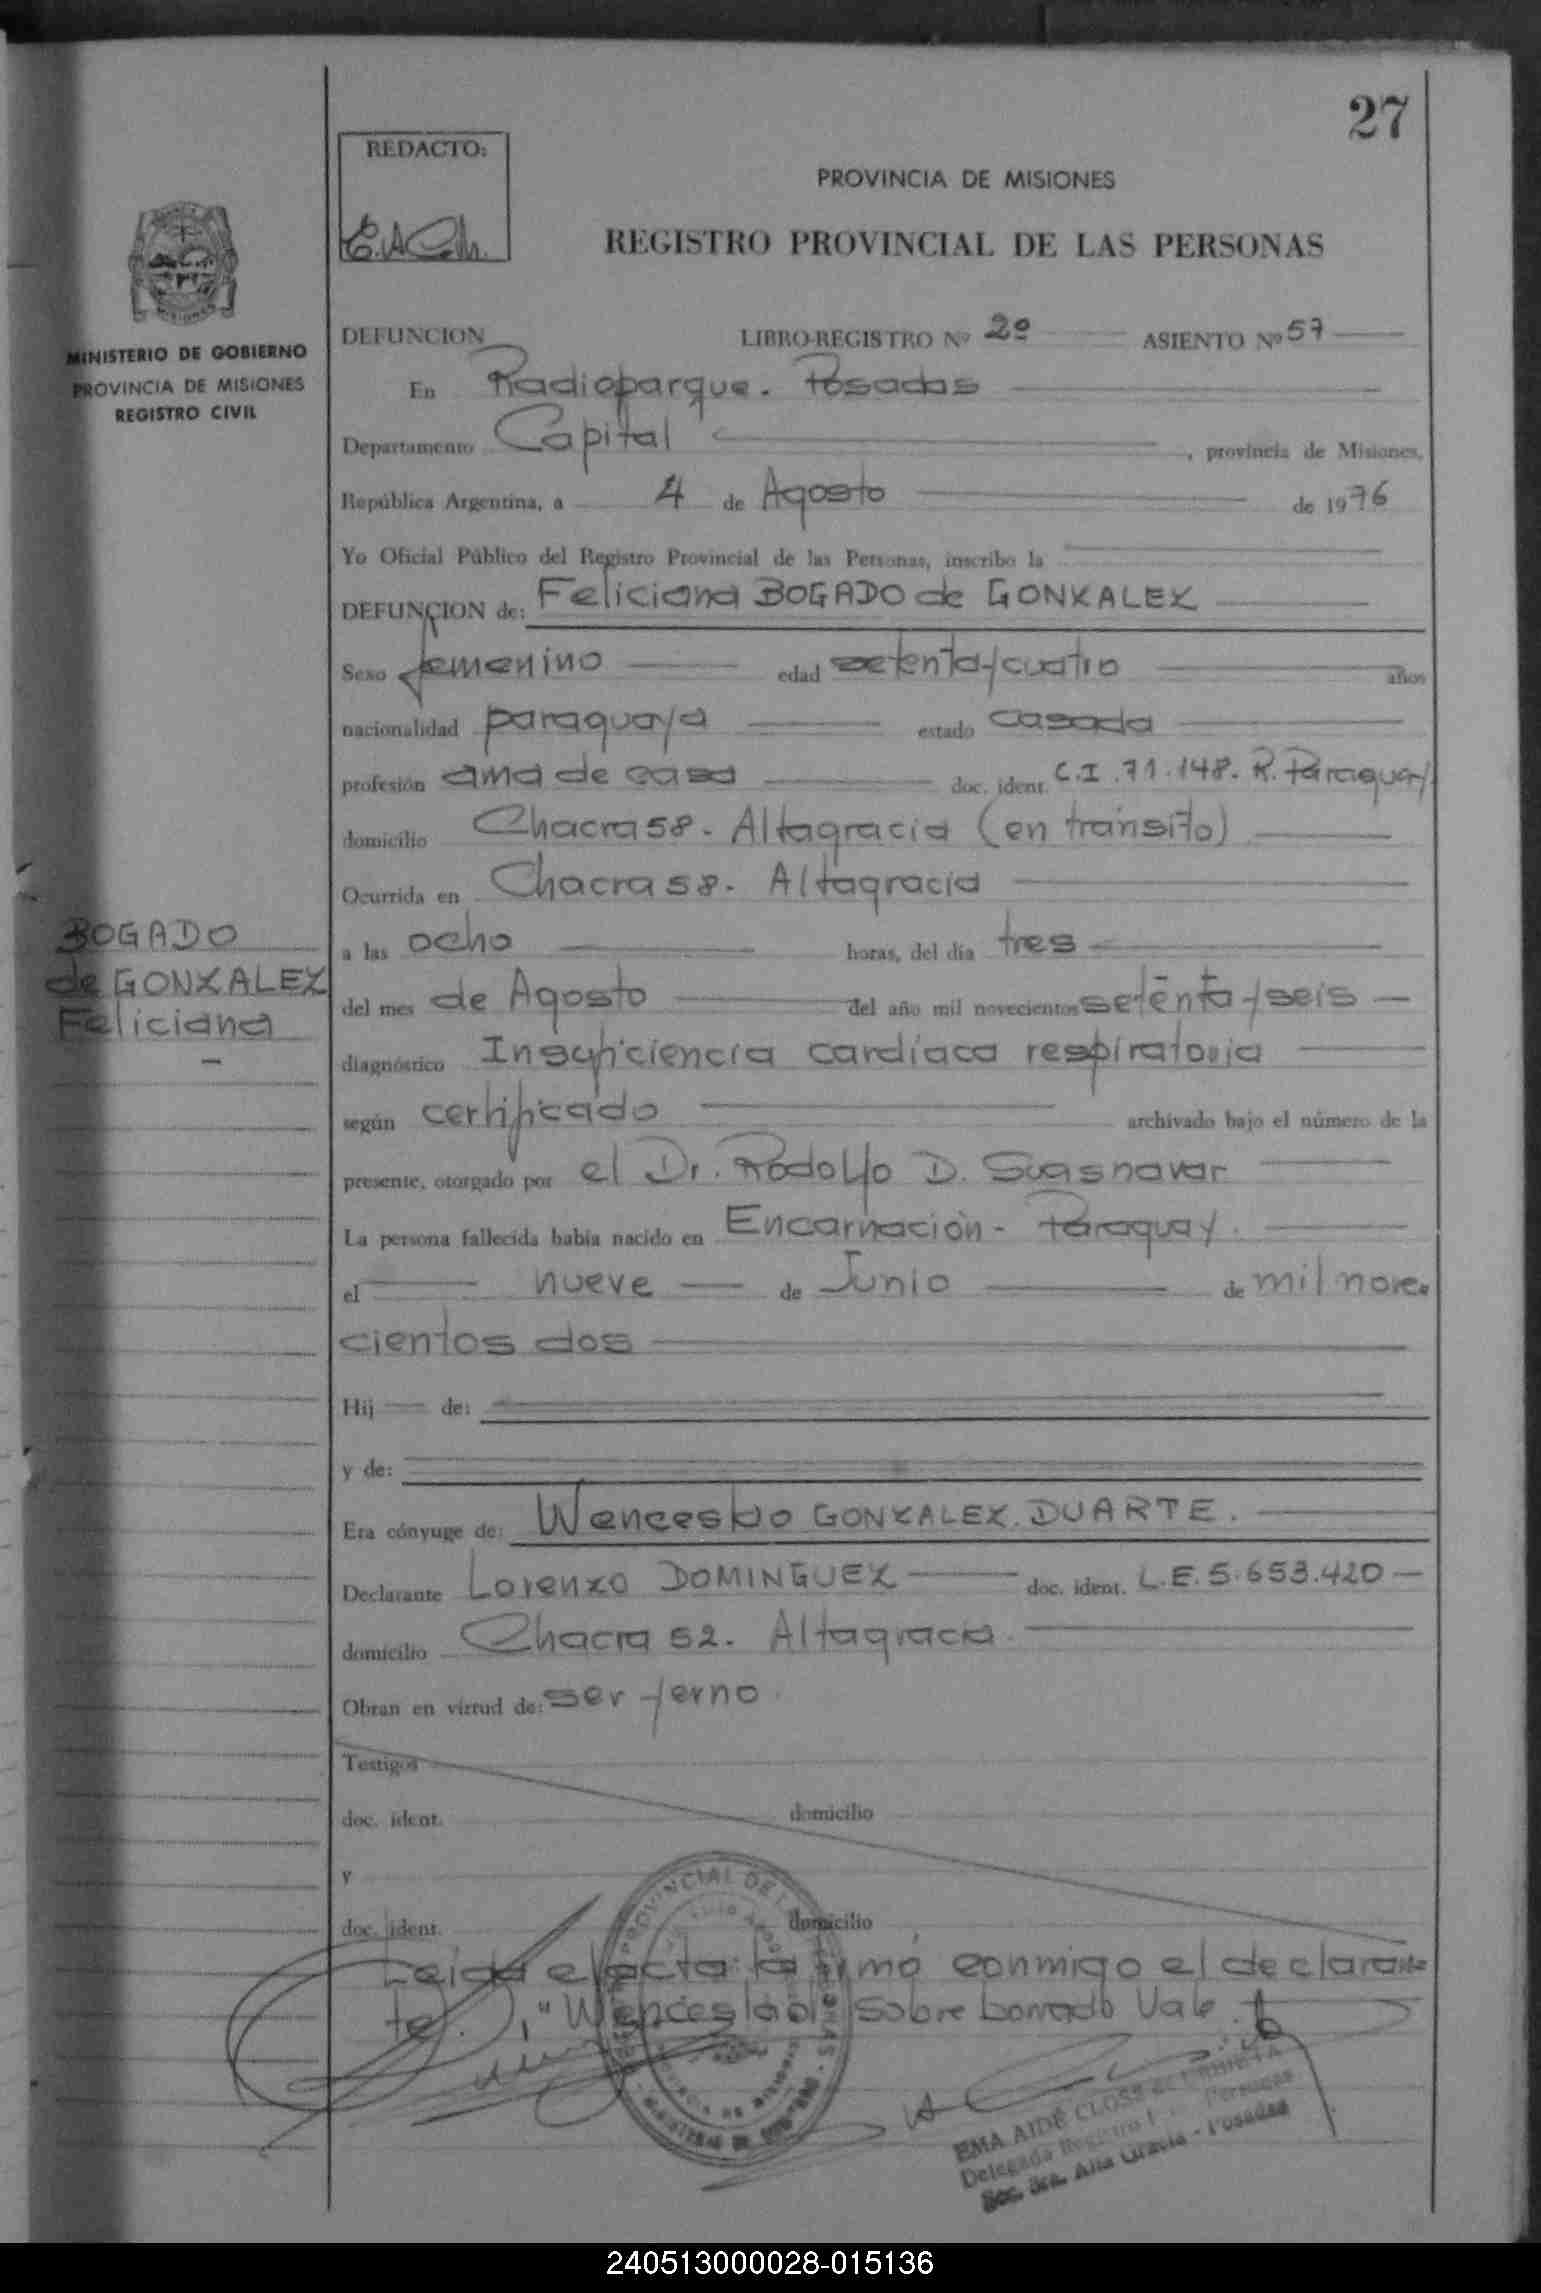 27
REDACTO:
PROVINCIA DE MISIONES
REGISTRO PROVINCIAL DE LAS PERSONAS
MISIONES
MINISTERIO DE GOBIERNO
PROVINCIA DE MISIONES
REGISTRO CIVIL
DEFUNCION LIBRO-REGISTRO Nº 2º ASIENTO Nº 57
En Radioparque. Posadas
Departamento Capital, provincia de Misiones,
República Argentina, a 4 de Agosto de 1976
Yo Oficial Público del Registro Provincial de las Personas, inscribo la
DEFUNCION de: Feliciana BOGADO de GONZALEZ
Sexo femenino edad setenta y cuatro años
nacionalidad paraguaya estado casada
profesión ama de casa doc. ident. C.I. 71.148. R. Paraguay
domicilio Chacra 58. Altagracia (en tránsito)
Ocurrida en Chacra 58. Altagracia
BOGADO
de GONZALEZ
Feliciana
a las ocho horas, del día tres
del mes de Agosto del año mil novecientos setenta y seis
diagnóstico Insuficiencia cardíaca respiratoria
según certificado archivado bajo el número de la
presente, otorgado por el Dr. Rodolfo D. Suasnavar
La persona fallecida había nacido en Encarnación - Paraguay.
el nueve de Junio de mil nove-
cientos dos
Hij de:
y de:
Era cónyuge de: Wenceslao GONZALEZ DUARTE.
Declarante Lorenzo DOMINGUEZ doc. ident. L.E. 5.653.420
domicilio Chacra 52. Altagracia.
Obran en virtud de: ser yerno.
Testigos
doc. ident. domicilio
y
doc. ident. domicilio
Leída el acta la firmó conmigo el declaran-
te. "Wenceslao" sobre borrado Vale.
EMA AIDÉ CLOSS de
Delegada Registro Personas
Sec. 3ra. Alta Gracia - Posadas
240513000028-015136